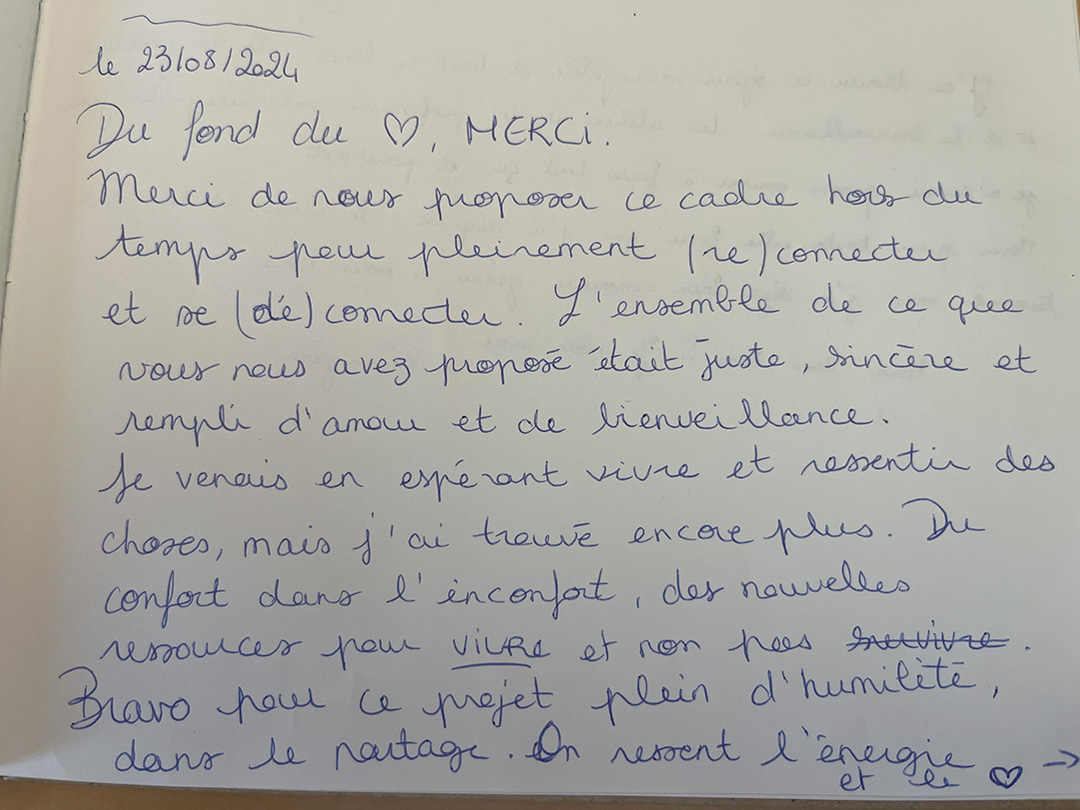 le 23/08/2024
Du fond du ♡, MERCi.
Merci de nous proposer ce cadre hors du
temps pour pleinement (re)connecter
et se (dé)connecter. L'ensemble de ce que
vous nous avez proposé était juste, sincère et
rempli d'amour et de bienveillance.
Je venais en espérant vivre et ressentir des
choses, mais j'ai trouvé encore plus. Du
confort dans l'inconfort, des nouvelles
ressources pour VIVRE et non pas survivre.
Bravo pour ce projet plein d'humilité,
dans le partage. On ressent l'énergie →
et le ♡